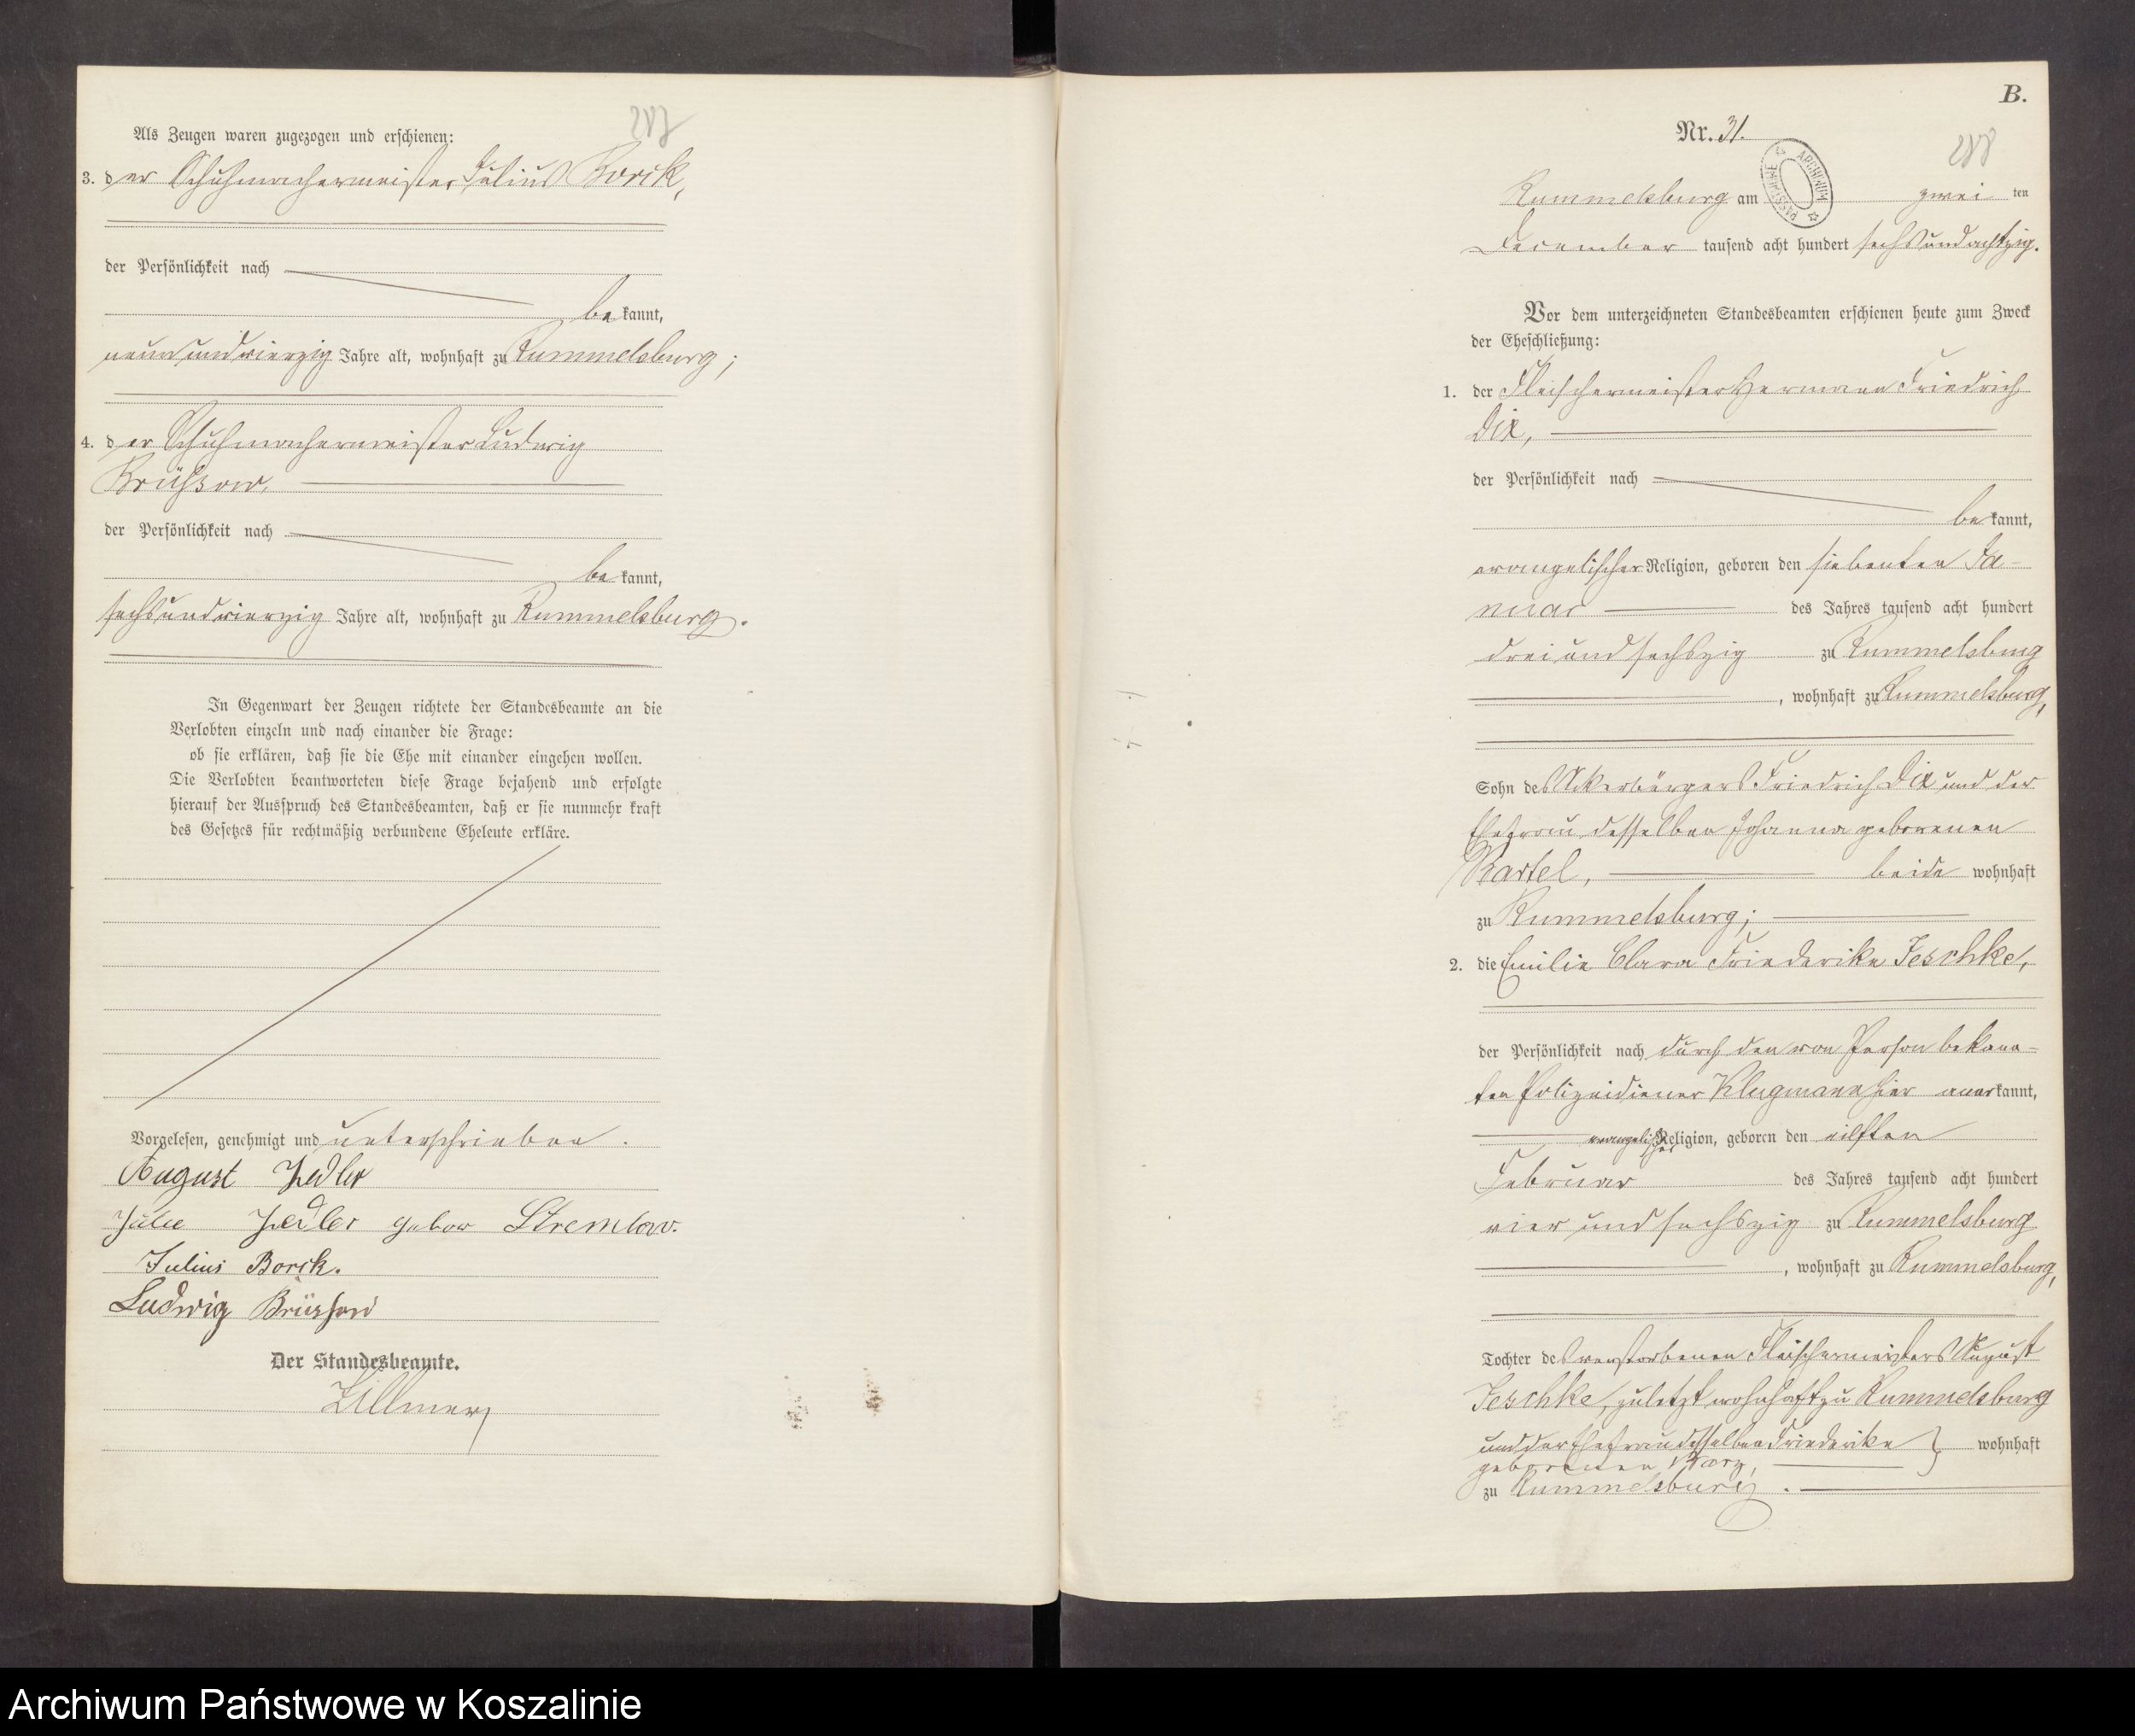 287
Als Zeugen waren zugezogen und erschienen:
3. der Schuhmachermeister Julius Borck,
der Persönlichkeit nach
bekannt,
neunundvierzig Jahre alt, wohnhaft zu Rummelsburg;
4. der Schuhmachermeister Ludwig
Brüssow,
der Persönlichkeit nach
bekannt,
sechsundvierzig Jahre alt, wohnhaft zu Rummelsburg.
In Gegenwart der Zeugen richtete der Standesbeamte an die
Verlobten einzeln und nach einander die Frage:
ob sie erklären, daß sie die Ehe mit einander eingehen wollen.
Die Verlobten beantworteten diese Frage bejahend und erfolgte
hierauf der Ausspruch des Standesbeamten, daß er sie nunmehr kraft
des Gesetzes für rechtmäßig verbundene Eheleute erkläre.
Vorgelesen, genehmigt und unterschrieben.
August Zedler
Julie Zedler gebor Stremlow.
Julius Borck.
Ludwig Brüssow
Der Standesbeamte.
Zillmer
B.
Nr. 31.
288
ARCHIWUM PAŃSTWOWE
Rummelsburg am zweiten
December tausend acht hundert sechsundachtzig.
Vor dem unterzeichneten Standesbeamten erschienen heute zum Zweck
der Eheschließung:
1. der Fleischermeister Hermann Friedrich
Dix,
der Persönlichkeit nach
bekannt,
evangelischer Religion, geboren den siebenten Ja-
nuar des Jahres tausend acht hundert
drei und sechszig zu Rummelsburg
, wohnhaft zu Rummelsburg,
Sohn des Ackerbürgers Friedrich Dix und der
Ehefrau desselben Johanna geborenen
Bartel, beide wohnhaft
zu Rummelsburg;
2. die Emilie Clara Friederike Jeschke,
der Persönlichkeit nach durch den von Person bekann-
ten Polizeidiener Klugmann hier anerkannt,
evangelischer Religion, geboren den eilften
Februar des Jahres tausend acht hundert
vier und sechszig zu Rummelsburg
, wohnhaft zu Rummelsburg,
Tochter des verstorbenen Fleischermeisters August
Jeschke, zuletzt wohnhaft zu Rummelsburg
und der Ehefrau desselben Friederike wohnhaft
geborenen
zu Rummelsburg.
Archiwum Państwowe w Koszalinie